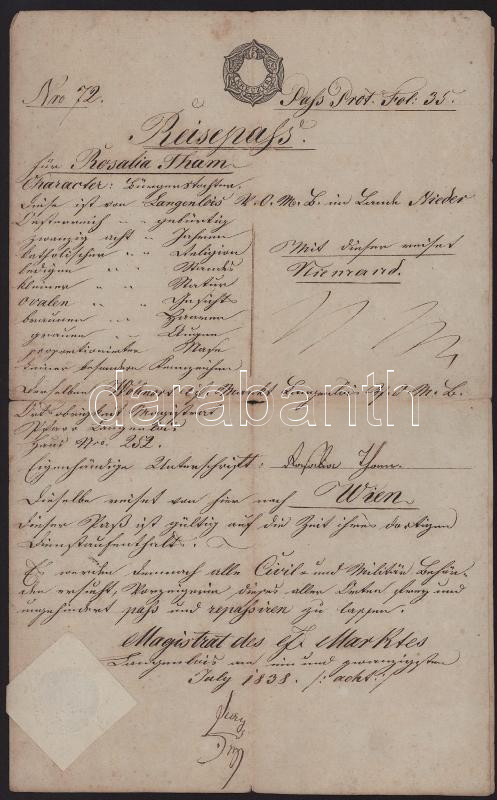 Nro 72.
Pass Prot. Fol: 35.
Reisepass.
für Rosalia Tham
Character: Bürgerstochter.
Diese ist von Langenlois V. O. M. B. im Lande Nieder
Oesterreich gebürtig
zwanzig acht Jahren
katholischer Religion
ledigen Standes
kleiner Statur
ovalen Gesichts
braunen Haaren
grauen Augen
proportionirter Nase
keiner besondere Kennzeichen
Mit dieser reiset
Niemand.
Derselben Wohnort ist Markt Langenlois V. O. M. B.
Obrigkeit Magistrat
Pfarre Langenlois
Haus Nro. 252.
Eigenhändige Unterschrift: Rosalia Tham
Dieselbe reiset von hier nach Wien
Dieser Paß ist gültig auf die Zeit ihres dortigen
Dienstaufenthalt:
Es werden demnach alle Civil- und Militär Behör-
den ersucht, Vorzeigerin dieses aller Orten frey und
ungehindert pass und repassiren zu lassen.
Magistrat des Marktes
Langenlois am ein und zwanzigsten
July 1838. /: acht :/
darabanth